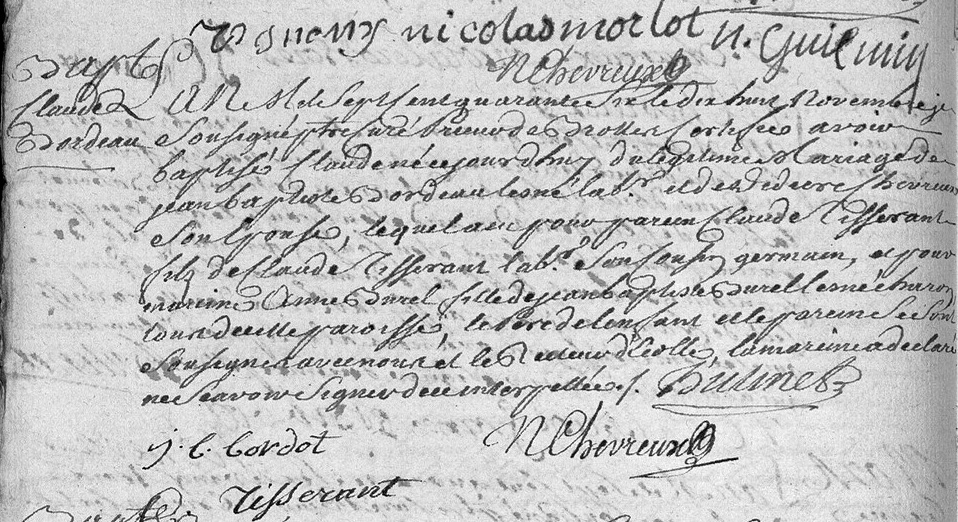 nicolas morlot n. Guilmin
N Chevreux
Bapt
Claude
Bordeau
L'AN Mil Sept Cent quarante six le dix huit Novembre je
Soussigné ptre Curé certifie avoir
baptisé Claude né ce jourdhuy du légitime Mariage de
jean baptiste Bordeau lesné lab.r et de Chevreux
Son Epouse, lequel a eu pour parein Claude Tisserant
fils de Claude Tisserant lab.r Son Cousin germain, et pour
mareine Anne Burel fille de jean baptiste Burel lesné
tous de cette paroisse, le Pere de lenfant et le parein se sont
Soussignes avec nous et le Recteur d'Ecolle, la mareine a declaré
ne Scavoir Signer de ce interpellée .
j. C. Cordot N Chevreux
Tisserant